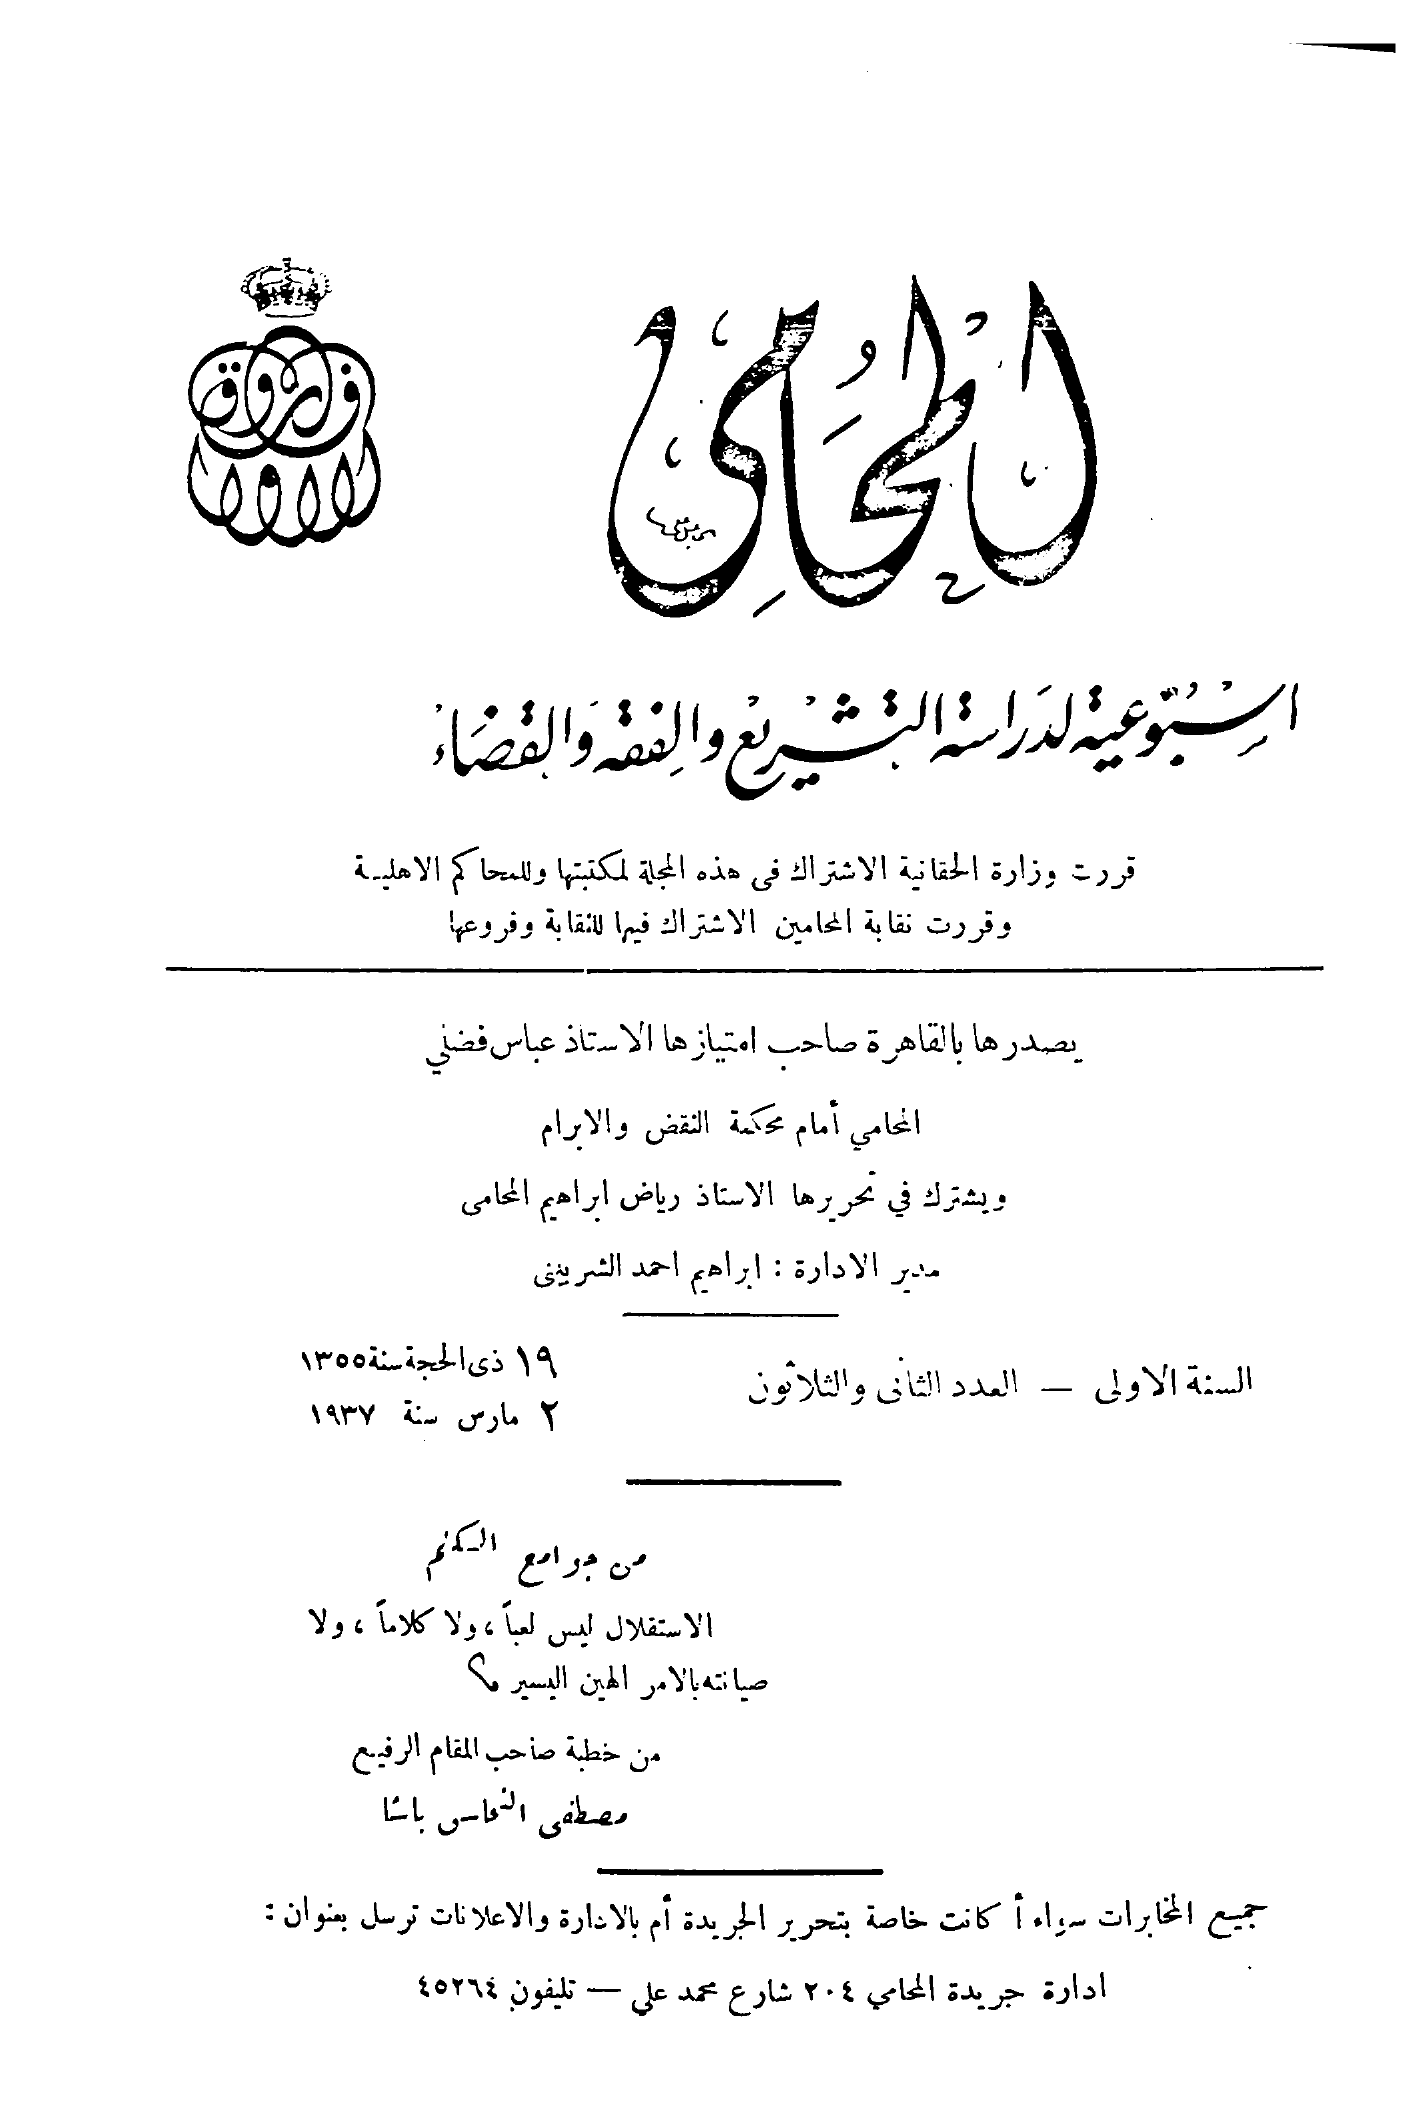 فاروق الاول
المحامي
اسبوعية لدراسة التشريع والفقه والقضاء
قررت وزارة الحقانية الاشتراك فى هذه المجلة لمكتبتها وللمحاكم الاهلية
وقررت نقابة المحامين الاشتراك فيها للنقابة وفروعها
يصدرها بالقاهرة صاحب امتيازها الاستاذ عباس فضلي
المحامي أمام محكمة النقض والابرام
ويشترك في تحريرها الاستاذ رياض ابراهيم المحامى
مدير الادارة : ابراهيم احمد الشربينى
السنة الاولى — العدد الثانى والثلاثون
١٩ ذى الحجة سنة ١٣٥٥
٢ مارس سنة ١٩٣٧
من جوامع الكلم
الاستقلال ليس لعباً ، ولا كلاماً ، ولا
صيانته بالامر الهين اليسير
من خطبة صاحب المقام الرفيع
مصطفى النحاس باشا
جميع المخابرات سواء أ كانت خاصة بتحرير الجريدة أم بالادارة والاعلانات ترسل بعنوان :
ادارة جريدة المحامي ٢٠٤ شارع محمد علي — تليفون ٤٥٢٦٤